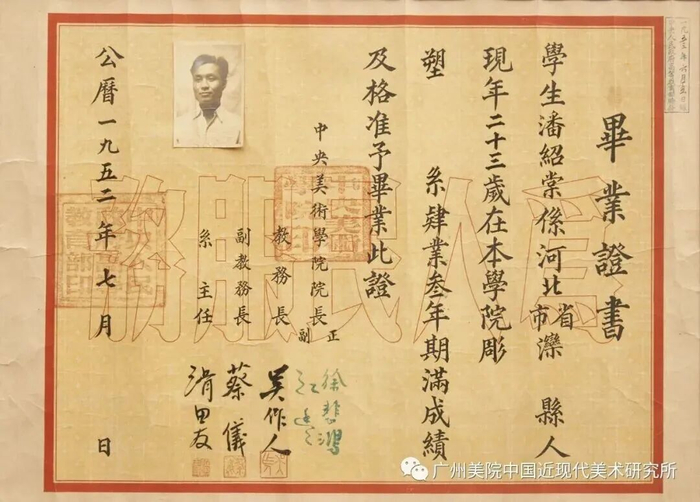 畢業證書
學生潘紹棠係河北省市灤縣人
現年二十三歲在本學院彫
塑系肄業叁年期滿成績
及格准予畢業此證
中央美術學院院長正副
徐悲鴻
江豐
教務長
吳作人
副教務長
蔡儀
系主任
滑田友
公曆一九五二年七月日
為人民服務
广州美院中国近现代美术研究所